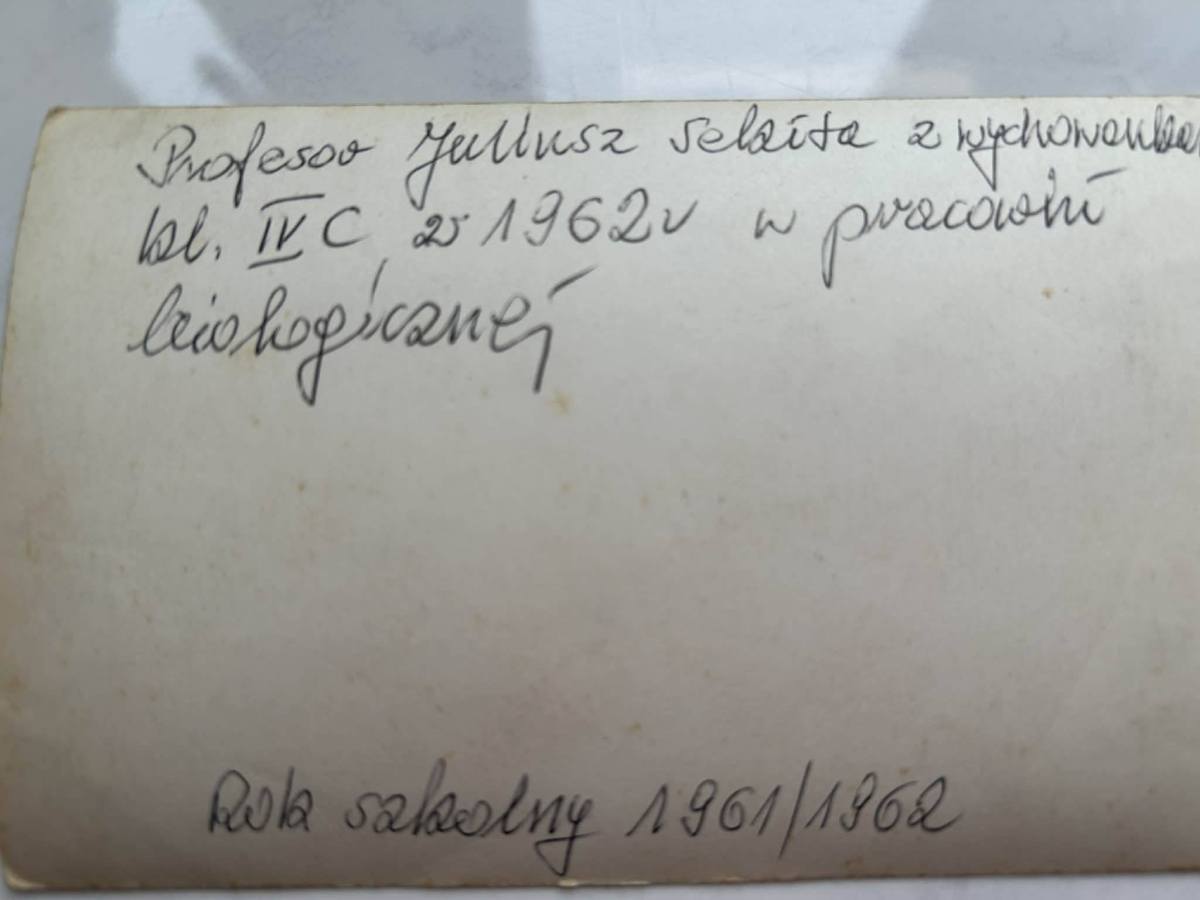 Profesor Juliusz Sekita z wychowanka
kl. IV C w 1962 r w pracowni
biologicznej
Rok szkolny 1961/1962